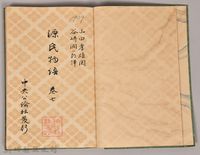 山田孝雄閲
谷崎潤一郎
源氏物語 巻七
中央公論社發行